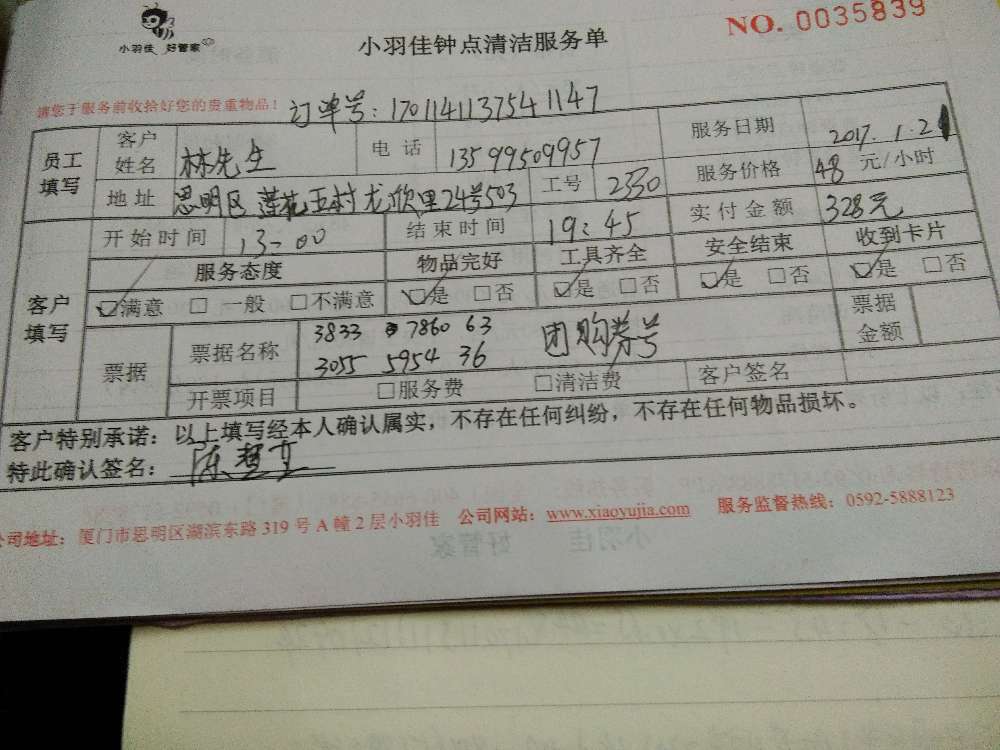 小羽佳 好管家
小羽佳钟点清洁服务单
NO. 0035839
请您于服务前收拾好您的贵重物品！
订单号：170114113754 1147
员工填写
客户姓名 林先生 电话 13599509957 服务日期 2017.1.21
地址 思明区莲花五村龙欣里24号503 工号 2330 服务价格 48 元/小时
客户填写
开始时间 13-00 结束时间 19:45 实付金额 328元
服务态度 物品完好 工具齐全 安全结束 收到卡片
☑满意 □一般 □不满意 ☑是 □否 ☑是 □否 ☑是 □否 ☑是 □否
票据 票据名称 3833 7860 63 团购券号 票据金额
3055 5954 36
开票项目 □服务费 □清洁费 客户签名
客户特别承诺：以上填写经本人确认属实，不存在任何纠纷，不存在任何物品损坏。
特此确认签名：
公司地址：厦门市思明区湖滨东路 319 号 A 幢 2 层小羽佳 公司网站：www.xiaoyujia.com 服务监督热线：0592-5888123